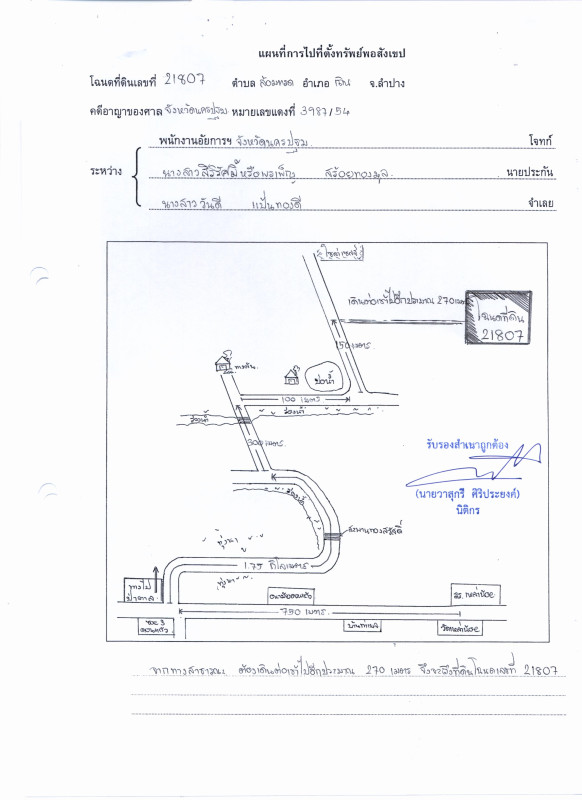 แผนที่การไปที่ตั้งทรัพย์พอสังเขป
โฉนดที่ดินเลขที่ 21807 ตำบล ล้อมแรด อำเภอ เถิน จ.ลำปาง
คดีอาญาของศาล จังหวัดนครปฐม หมายเลขแดงที่ 3987/54
พนักงานอัยการฯ จังหวัดนครปฐม โจทก์
ระหว่าง นางสาวสิริรัศมิ์หรือพรเพ็ญ สร้อยทองมูล นายประกัน
นางสาววันดี แป้นทองดี จำเลย
เดินต่อเข้าไปอีกประมาณ 270 เมตร
โฉนดที่ดิน
21807
150 เมตร
บ่อน้ำ
100 เมตร
ร่องน้ำ
ร่องน้ำ
300 เมตร
รับรองสำเนาถูกต้อง
(นายวาสุกรี ศิริประยงค์)
นิติกร
ร่องน้ำ
ทุ่งนา
1.75 กิโลเมตร
ทุ่งนา
ทางไป
750 เมตร
จากทางสาธารณะ ต้องเดินต่อเข้าไปอีกประมาณ 270 เมตร จึงจะถึงที่ดินโฉนดเลขที่ 21807